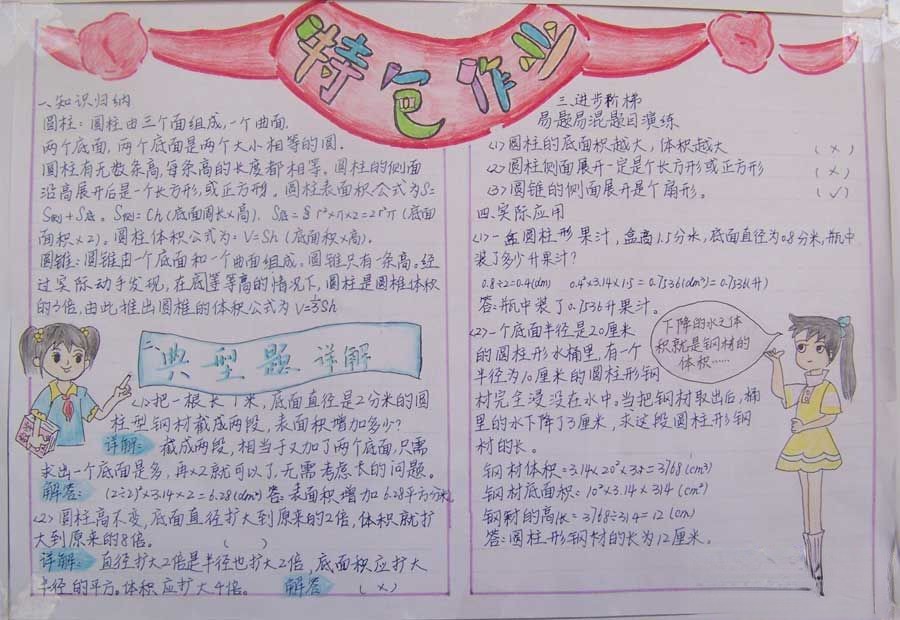 特色作业
一、知识归纳
圆柱：圆柱由三个面组成，一个曲面.
两个底面，两个底面是两个大小相等的圆.
圆柱有无数条高，每条高的长度都相等。圆柱的侧面
沿高展开后是一个长方形，或正方形。圆柱表面积公式为S=
S侧+S底。S侧=Ch(底面周长×高). S底=r²×π×2=2r²π(底面
面积×2)。圆柱体积公式为：V=Sh(底面积×高).
圆锥：圆锥由一个底面和一个曲面组成，圆锥只有一条高。经
过实际动手发现，在底等等高的情况下，圆柱是圆椎体积
的3倍，由此推出圆椎的体积公式为V=⅓Sh
二、典型题详解
(1)把一根长1米，底面直径是2分米的圆
柱型钢材截成两段，表面积增加多少？
详解：截成两段，相当于又加了两个底面，只需
求出一个底面是多，再×2就可以了，无需考虑长的问题。
解答：(2÷2)²×3.14×2=6.28(dm²) 答：表面积增加6.28平方分米
(2)圆柱高不变，底面直径扩大到原来的2倍，体积就扩
大到原来的8倍。 ( )
详解：直径扩大2倍是半径也扩大2倍，底面积应扩大
半径的平方。体积应扩大4倍。 解答 (×)
三、进步阶梯
易题易混题目演练
(1)圆柱的底面积越大，体积越大 (×)
(2)圆柱侧面展开一定是个长方形或正方形 (×)
(3)圆锥的侧面展开是个扇形。 (✓)
四、实际应用
(1)一盒圆柱形果汁，盒高1.5分米，底面直径为0.8分米，瓶中
装了多少升果汁？
0.8÷2=0.4(dm) 0.4²×3.14×1.5=0.7536(dm³)=0.7536(升)
答：瓶中装了0.7536升果汁。
(2)一个底面半径是20厘米
的圆柱形水桶里，有一个
半径为10厘米的圆柱形钢
材完全浸没在水中。当把钢材取出后，桶
里的水下降了3厘米，求这段圆柱形钢
材的长。
钢材体积：3.14×20²×3=3768(cm³)
钢材底面积：10²×3.14=314(cm²)
钢材的高长=3768÷314=12(cm)
答：圆柱形钢材的长为12厘米。
下降的水之体
积就是钢材的
体积……